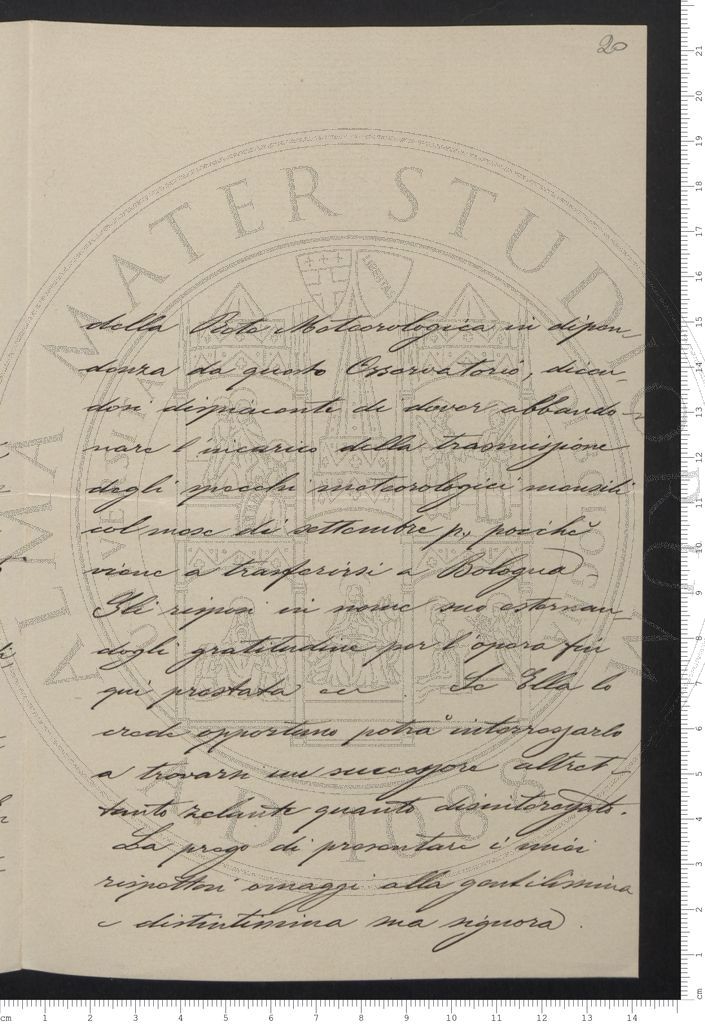 20
della Rete Meteorologica in dipen-
denza da questo Osservatorio, dicen-
dosi dispiacente di dover abbando-
nare l'incarico della trasmissione
degli specchi meteorologici mensili
col mese di settembre p., poichè
viene a trasferirsi a Bologna.
Gli risposi in nome suo esternan-
dogli gratitudine per l'opera fin
qui prestata ecc. Se Ella lo
crede opportuno potrà interessarlo
a trovarsi un successore altret-
tanto zelante quanto disinteressato.
La prego di presentare i miei
rispettosi omaggi alla gentilissima
e distintissima sua signora.
ALMA MATER STUDIORUM
LIBERTAS
A.D. 1088